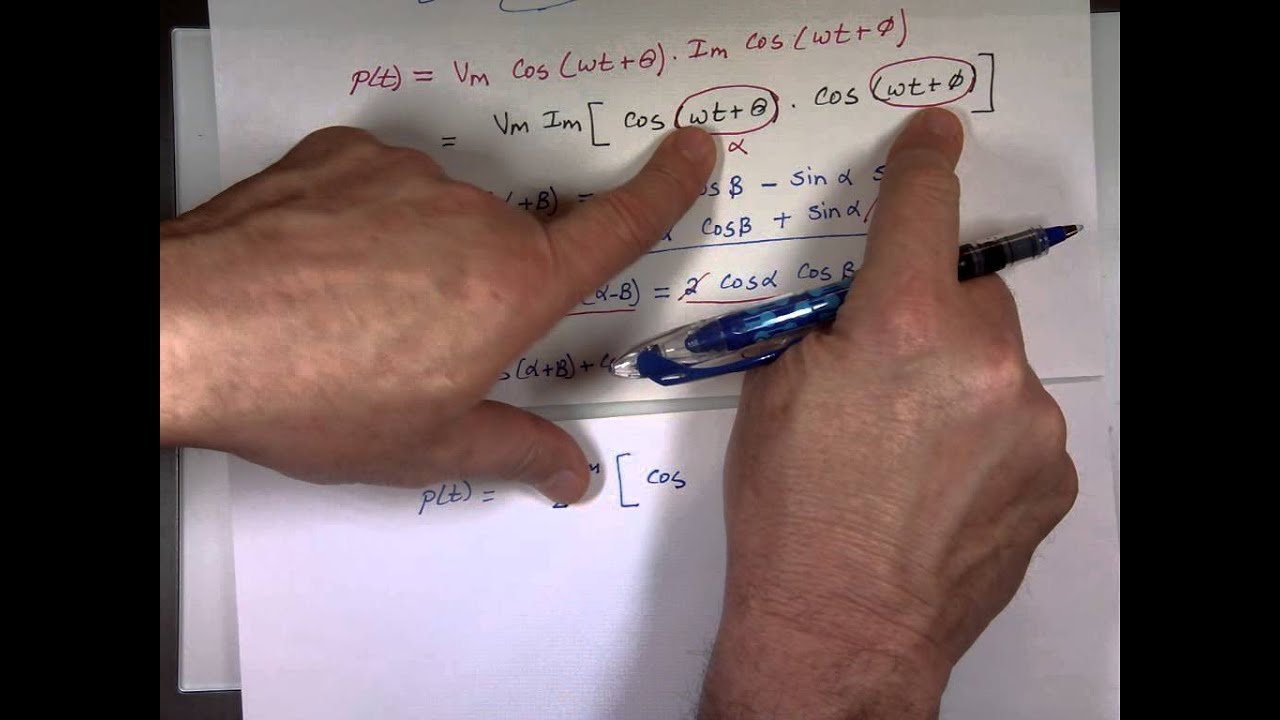 p(t) = Vm cos(wt+θ). Im cos(wt+φ)
= Vm Im[ cos (wt+θ) . cos (wt+φ) ]
α
+B) = cosB - sinα
cosB + sinα
(α-B) = 2 cosα cosB
(α+B) +
p(t) = [ cos